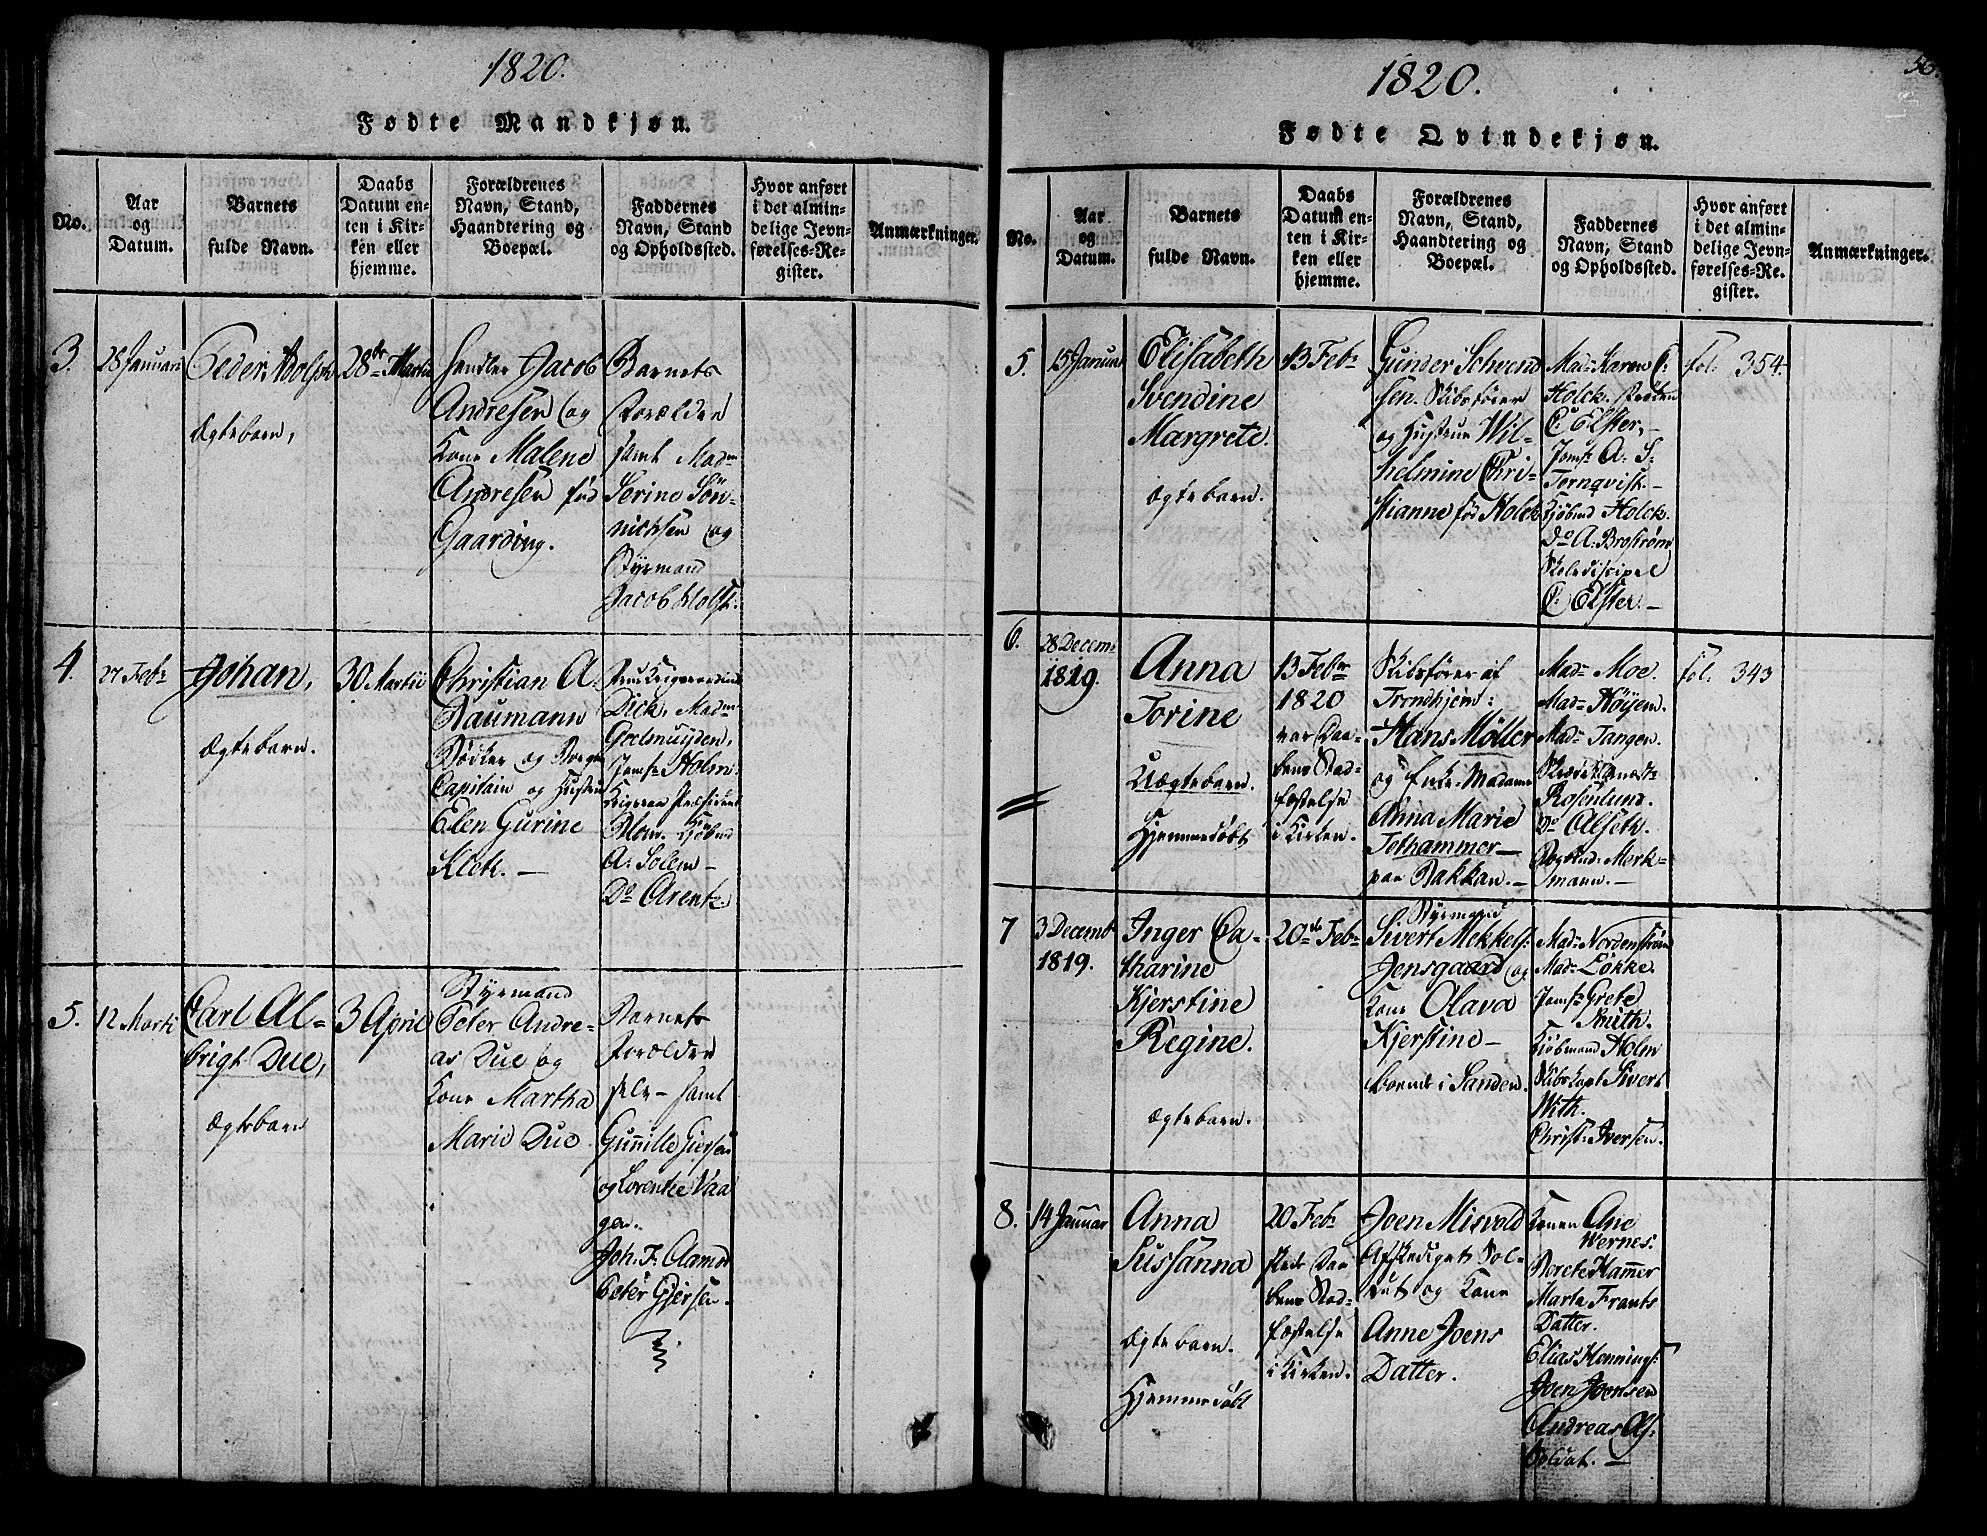 1820.
Fødte Mandkjøn.
No.
Aar
og
Datum.
Barnets
fulde Navn.
Daabs
Datum en-
ten i Kir-
ken eller
hjemme.
Forældrenes
Navn, Stand,
Haandtering og
Boepæl.
Faddernes
Navn, Stand
og Opholdssted.
Hvor anført
i det almin-
delige Jevn-
førelses-Re-
gister.
Anmærkninger.
3.
28 Januari
Peder Adolph
Ægtebarn,
28de Martii
Handler Jacob
Andresen og
Kone Malene
Andresen fød
Gaarding.
Barnets
Forældre
samt Madm
Serine Sön-
nichsen og
Styrmand
Jacob Holst.
4.
27 Febr
Johan,
Ægtebarn.
30 Martii
Christian A.
Naumann
Bødker og Borger
Capitain og Hustru
Elen Gurine
Kleth. —
Dick, Madm
Geelmuyden,
Jomf: Holm.
Blom. Kjøbmd
A: Solem —
Do Arentz.
5.
12 Marti
Carl Al-
brigt Due,
Ægtebarn
3 April
Styrmand
Peter Andre-
as Due og
Kone Martha
Marie Due
Barnets
Forældre
selv — samt
Gunnille Giersen
og Lorentze Vaa
gen.
Joh. F. Aamod
Peter Gjersen.
1820.
56.
Fødte Qvindekjøn.
No.
Aar
og
Datum.
Barnets
fulde Navn.
Daabs
Datum en-
ten i Kir-
ken eller
hjemme.
Forældrenes
Navn, Stand,
Haandtering og
Boepæl.
Faddernes
Navn, Stand
og Opholdssted.
Hvor anført
i det almin-
delige Jevn-
førelses-Re-
gister.
Anmærkninger.
5.
15 Januar
Elisabeth
Svendine
Margrete.
Ægtebarn.
13 Febr
Gunder Schvend
sen. Skibsfører
og Hustrue Wil-
helmine Chri-
stianne fød Holck
Mad: Karen C:
Holck.
C: Elster, —
Jomf: A: S:
Tornqvist. —
Kjøbmd Holck.
Do A: Broström
Skoledisipel
C: Elster. —
fol: 354.
6.
28 Decem-
1819.
Anna
Torine
Uægtebarn.
Hjemmedøbt
13 Febr
1820
var Daa-
bens Stad-
fæstelse
i Kirken.
Skibsfører af
Trondhjem:
Hans Möller
og Enke-Madame
Anna Marie
Tethammer —
paa Bakkan. —
Mad: Moe.
Mad: Höÿem.
Mad: Tangen.
Rosenlund.
Do Alseth.
Bogbind: Merk-
mann. —
fol. 343
7
3 Decembr
1819.
Inger Ca-
tharine
Kjerstine
Regine.
Ægtebarn.
20de Febr
Styrmand
Sivert Mekkels:
Jensgaard og
Kone Olava
Kjerstine —
boende i Sanden.
Mad: Nordenström
Mad: Løkke.
Jomf: Grete
With.
Kjøbmand Holm
Skibskapt Sivert
With.
Christ: Iversen.
8.
14 Januar
Anna
Sussanna
Ægtebarn.
Hjemmedøbt
20 Febr
skede Daa
bens Stad-
fæstelse
i Kirken.
Joen Misvold
Afskediget Sol-
dat og Kone
Anne Joens
Datter.
Konen Ane
Wernes.
Berete Hammer
Marta Frants
Datter.
Elias Hennings:
Joen Joensen
Andreas Af:
Soldat. —